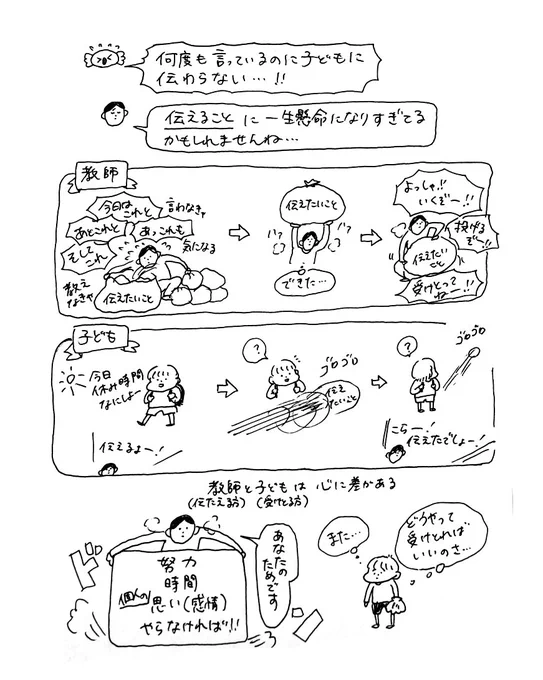 何度も言っているのに子どもに
伝わらない…!!
伝えること に一生懸命になりすぎてる
かもしれませんね…
教師
今日は
これと
言わなきゃ
あとこれと
あっこれも
そして
これ
気になる
教え
なきゃ
伝えたいこと
伝えたいこと
できた…
よっしゃ!!
いくぞー!!
投げる
ぞー!!
伝えたい
こと
受けとって
ねー!!
子ども
今日
休み時間
なにしよー
伝えるよー!
?
ゴロゴロ
伝え
たいこと
?
ゴロゴロ
こらー!
伝えたでしょー!
教師と子どもは 心に差がある
(伝たえる方) (受けとる方)
ドン
努力
時間
個人の
思い(感情)
やらなければ!!
あなたの
ためです
また…
どうやって
受けとれば
いいのさ…